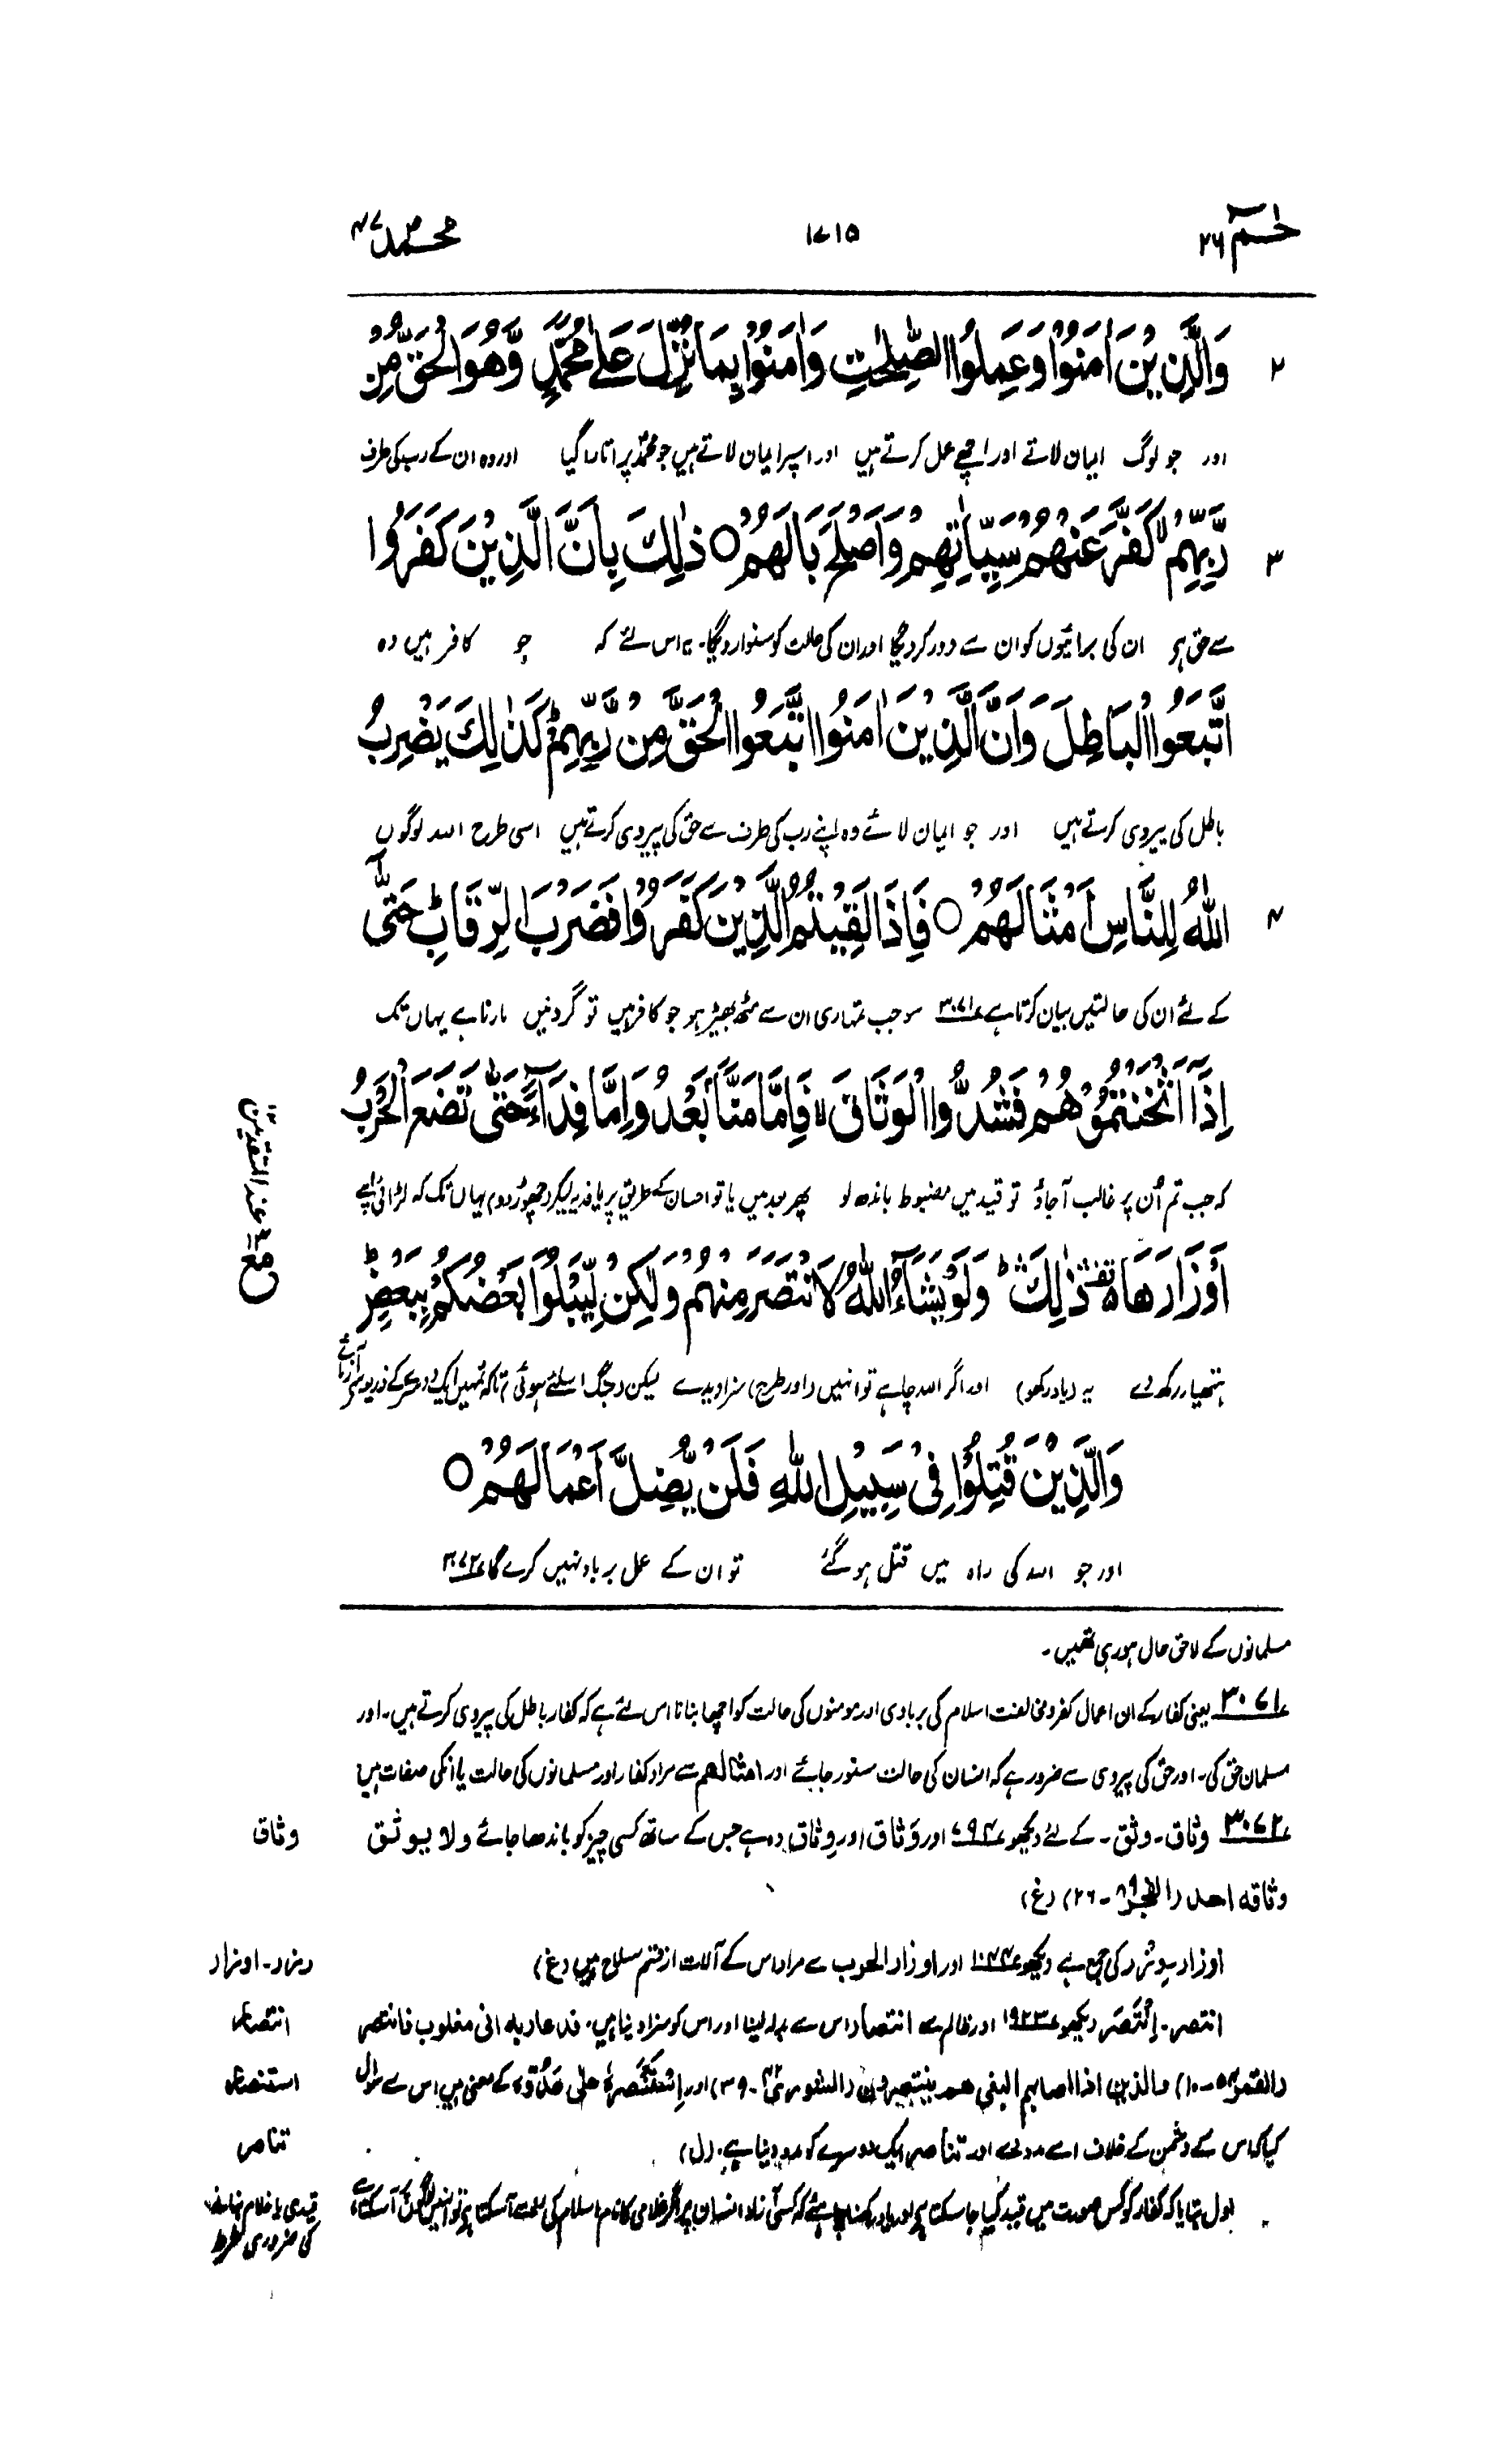 حٰمٓ ۲۶
۱۷۱۵
محمد ۴۷
۲
وَالَّذِيْنَ اٰمَنُوْا وَعَمِلُوا الصّٰلِحٰتِ وَاٰمَنُوْا بِمَا نُزِّلَ عَلٰى مُحَمَّدٍ وَّهُوَ الْحَقُّ مِنْ
اور جو لوگ ایمان لاتے اور اچھے عمل کرتے ہیں اور اسپر ایمان لاتے ہیں جو محمدؐ پر اتارا گیا اور وہ ان کے رب کی طرف
۳
رَّبِّهِمْ ۙ كَفَّرَ عَنْهُمْ سَيِّاٰتِهِمْ وَاَصْلَحَ بَالَهُمْ ○ ذٰلِكَ بِاَنَّ الَّذِيْنَ كَفَرُوا
سے حق ہے ان کی برائیوں کو ان سے دور کر دیگا اور ان کی حالت کو سنوار دیگا۔ یہ اس لئے کہ جو کافر ہیں وہ
اتَّبَعُوا الْبَاطِلَ وَاَنَّ الَّذِيْنَ اٰمَنُوا اتَّبَعُوا الْحَقَّ مِنْ رَّبِّهِمْ ؕ كَذٰلِكَ يَضْرِبُ
باطل کی پیروی کرتے ہیں اور جو ایمان لائے وہ اپنے رب کی طرف سے حق کی پیروی کرتے ہیں اسی طرح اللہ لوگوں
۴
اللّٰهُ لِلنَّاسِ اَمْثَالَهُمْ ○ فَاِذَا لَقِيْتُمُ الَّذِيْنَ كَفَرُوْا فَضَرْبَ الرِّقَابِ ؕ حَتّٰٓى
کے لئے ان کی حالتیں بیان کرتا ہے ۳۰۷۱ سو جب تمہاری ان سے مٹھ بھیڑ ہو جو کافر ہیں تو گردنیں مارنا ہے یہاں تک
اِذَآ اَثْخَنْتُمُوْهُمْ فَشُدُّوا الْوَثَاقَ ۙ فَاِمَّا مَنًّۢا بَعْدُ وَاِمَّا فِدَآءً حَتّٰى تَضَعَ الْحَرْبُ
کہ جب تم اُن پر غالب آ جاؤ تو قید میں مضبوط باندھ لو پھر بعد میں یا تو احسان کے طریق پر یا فدیہ لیکر (چھوڑ دو) یہاں تک کہ لڑائی اپنے
اَوْزَارَهَا ذٰلِكَ ؕ وَلَوْ يَشَآءُ اللّٰهُ لَانْتَصَرَ مِنْهُمْ وَلٰكِنْ لِّيَبْلُوَا۟ بَعْضَكُمْ بِبَعْضٍ ؕ
ہتھیار رکھ دے یہ (یاد رکھو) اور اگر اللہ چاہے تو انہیں (اور طرح) سزا دیدے لیکن (جنگ اسلئے ہوئی) تاکہ تمہیں ایک دوسرے کے ذریعہ سے آزمائے
وَالَّذِيْنَ قُتِلُوْا فِيْ سَبِيْلِ اللّٰهِ فَلَنْ يُّضِلَّ اَعْمَالَهُمْ ○
اور جو اللہ کی راہ میں قتل ہو گئے تو ان کے عمل برباد نہیں کرے گا ۳۰۷۲
مسلمانوں کے لاحق حال ہو رہی تھیں۔
۳۰۷۱ یعنی کفار کے ان اعمال کفر و مخالفت اسلام کی بربادی اور مومنوں کی حالت کو اچھا بنانا اس لئے ہے کہ کفار باطل کی پیروی کرتے ہیں۔ اور
مسلمان حق کی۔ اور حق کی پیروی سے ضرور ہے کہ انسان کی حالت سنور جائے اور امثالھم سے مراد کفار اور مسلمانوں کی حالت یا انکی صفات ہیں
۳۰۷۲ وثاق۔ وثق۔ کے لئے دیکھو اور وَثاق اور وِثاق وہ ہے جس کے ساتھ کسی چیز کو باندھا جائے ولا یوثق
وثاق
وثاقه احد (الفجر ۸۹-۲۶) (غ)
اوزار۔ وِزر کی جمع ہے دیکھو اور اوزار الحرب سے مراد اس کے آلات از قسم سلاح ہیں (غ)
وزر۔ اوزار
انتصر۔ اِنْتَصَر دیکھو ۱۹۲۳ اور ظالم سے انتصار اس سے بدلہ لینا اور اس کو سزا دینا ہیں۔ فدعا ربه انی مغلوب فانتصر
انتصار
(القمر ۵۴-۱۰) والذین اذا اصابهم البغی هم ینتصرون (الشوریٰ ۴۲-۳۹) اور اِسْتَنْصَرَہٗ علی عَدُوِّہ کے معنی ہیں اس سے سوال
استنصار
کیا کہ اس کے دشمن کے خلاف اسے مدد دے اور تناصر ایک دوسرے کو مدد دینا ہے۔ (ل)
تناصر
اول بتایا کہ کفار کو کس صورت میں قید کیا جا سکتا ہے اور یاد رکھنا چاہئے کہ کسی آزاد انسان پر اگر غلامی کا نام اسلام کی رو سے آ سکتا ہے تو
قیدی یا غلام بنانے
کی ضروری شرط